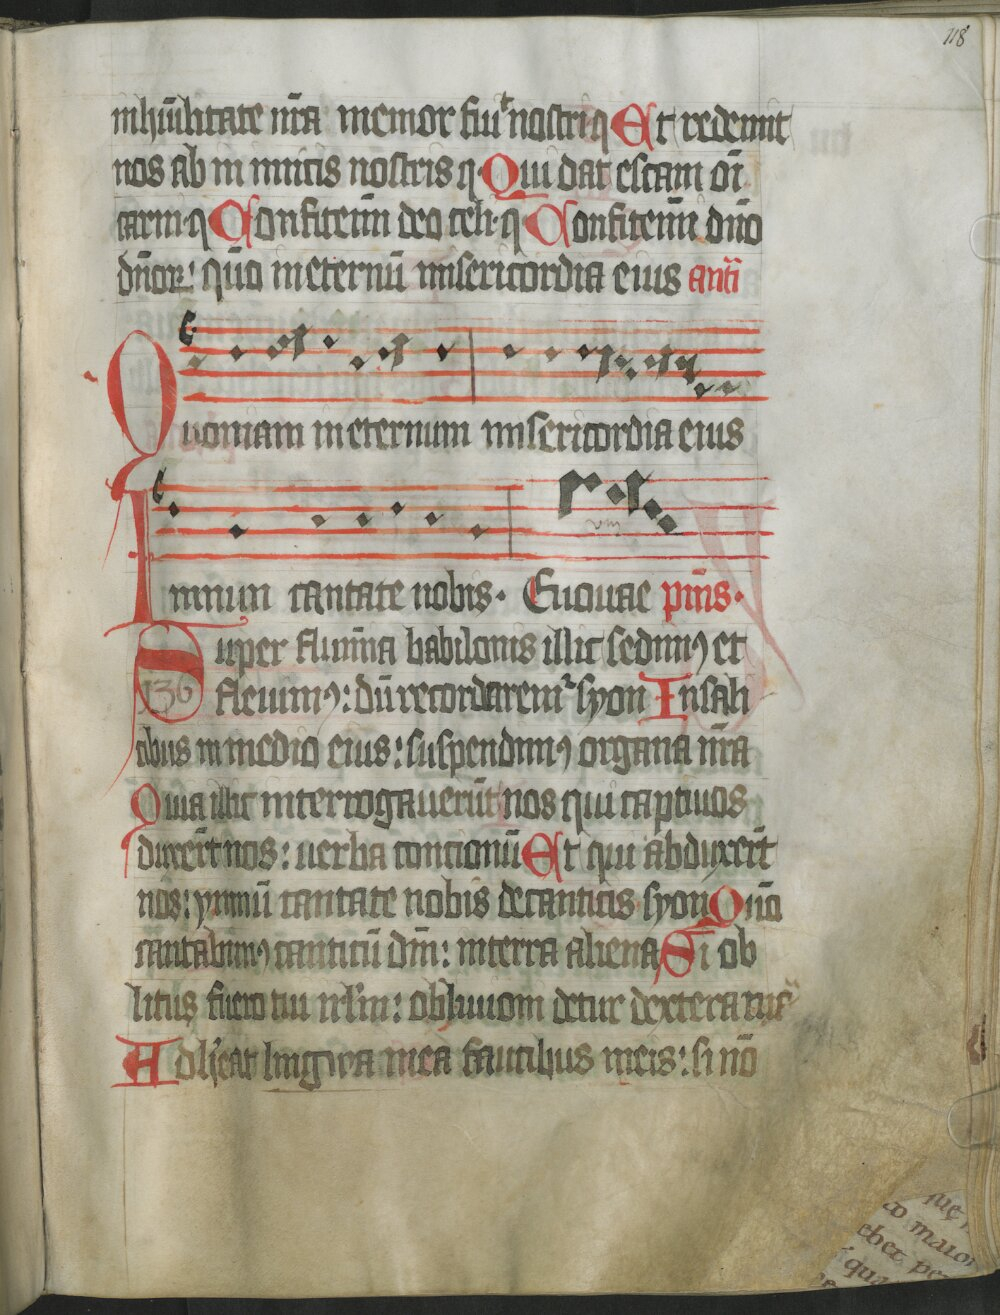 118
inhūilitate nr̄a memor fuit nostri q Et redemit
nos ab inimicis nostris q. Qui dat escam oī
carni. q Confitemī deo celi. q Confitemī dn̄o
dn̄oꝝ: qm̄o in eternū misericordia eius antī
Quoniam in eternum misericordia eius
Imnum cantate nobis. Euouae pm̄s.
Super flumīa babilonis illic sedimꝰ et
136
fleuimꝰ: dū recordaremr̄ syon In sali
cibus in medio eius: suspendimꝰ organa nr̄a
Quia illic interrogauerūt nos qui captiuos
duxer̄t nos: uerba cantionū Et qui abduxer̄t
nos: ymnū cantate nobis de canticis syon Quō
cantabimꝰ canticū dn̄i: in terra aliena Si ob
litus fuero tui irl̄m: obliuioni detur dextera
Adhēat lingwa mea faucibus meis: si nō
maior